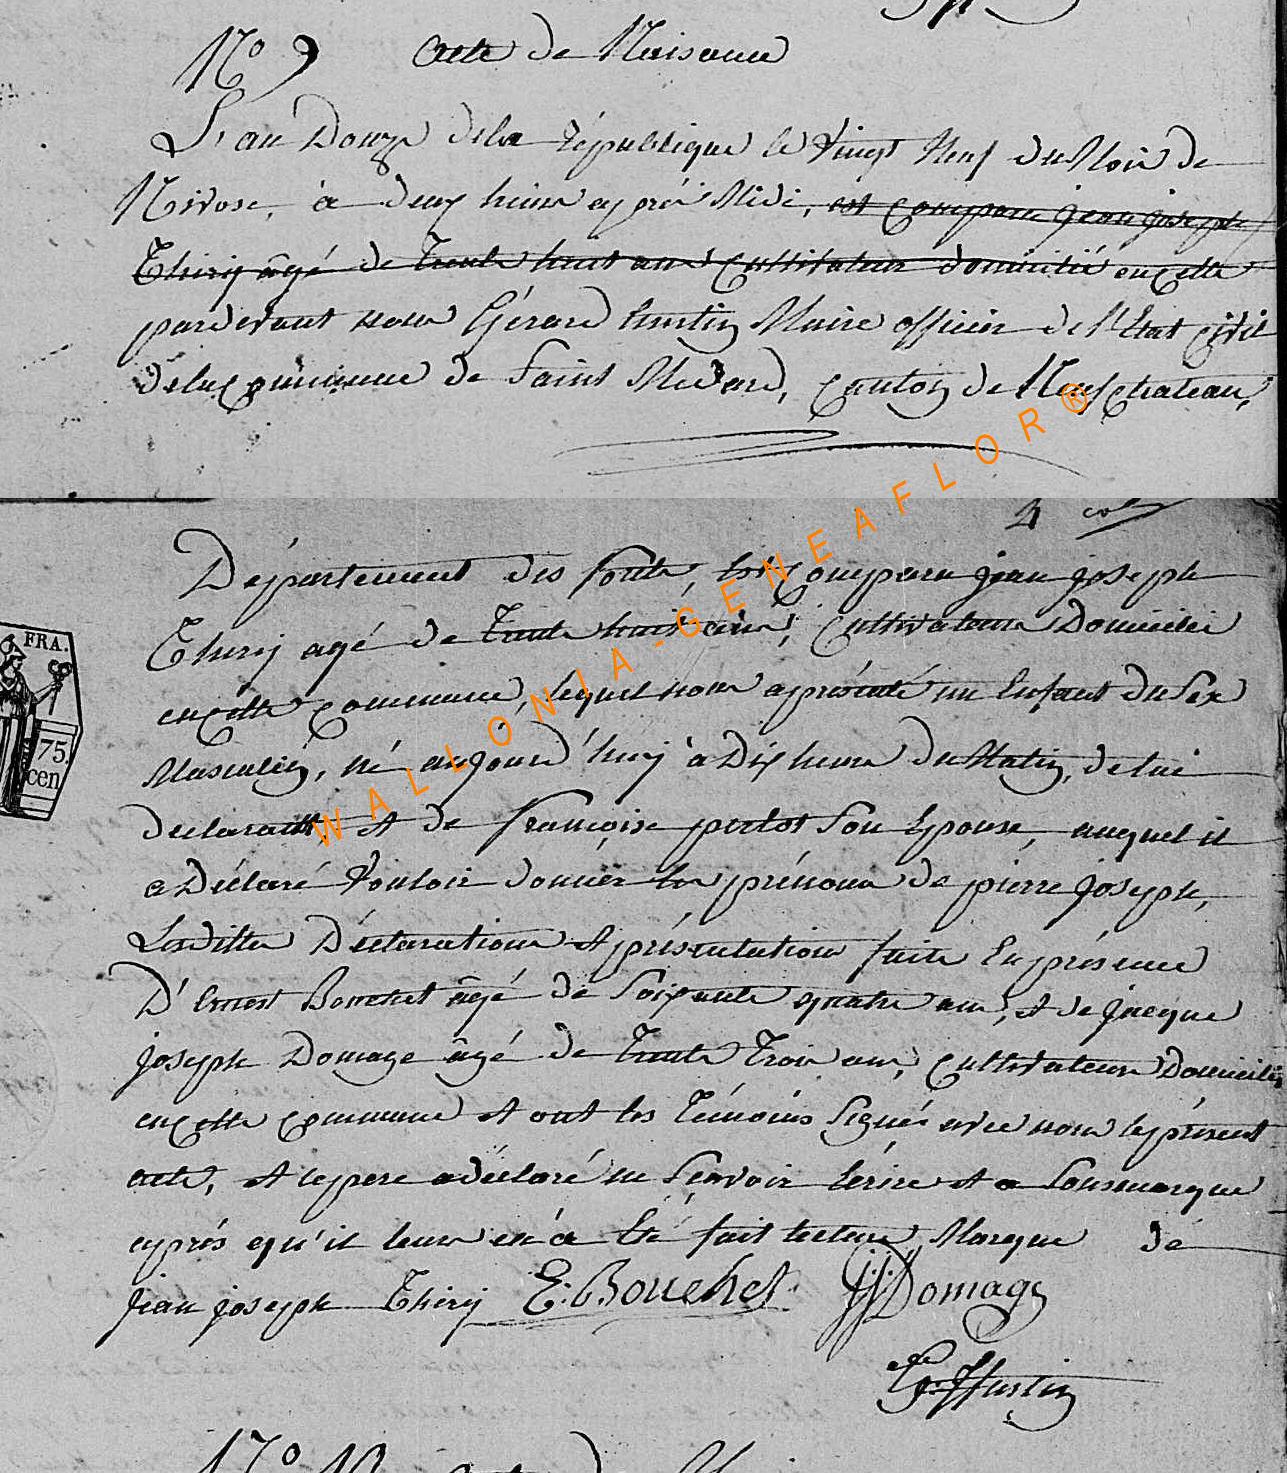 N° 9 Acte de Naisance
L'an Douze dela république le vingt Neuf du Mois de
Nivose, à deux heures après Midi, est comparu jean joseph
Thiry âgé de trente huit ans cultivateur domicilié en cette
pardevant nous Gérard hustin Maire officier de l'Etat civil
dela commune de Saint Medard, canton de Neufchateau,
4
Département des forêts, est comparu jean joseph
Thiry agé de trente huit ans, cultivateur Domicilié
en cette commune, lequel nous a présenté un Enfant du Sex
Masculin, né aujourd'huy à Dix heures du Matin, de lui
declarant et de françoise pietot son Epouse, auquel il
a Déclaré vouloir donner les prénoms de pierre joseph,
Lesdittes Déclaration et présentation faite En présence
D'Ernest Bouchet âgé de Soixante quatre ans, et de jacque
joseph Domage âgé de trente trois ans, cultivateurs Domiciliés
en cette commune et ont les témoins signés avec nous le présent
acte, et le pere a déclaré ne Scavoir Ecrire et a Sousmarqué
après qu'il leur en a Eté fait lecture, Marque de
jean joseph Thiry E: Bouchet JJ Domage
G. Hustin
FRA.
75.
cen
WALLONIA-GENEAFLOR®